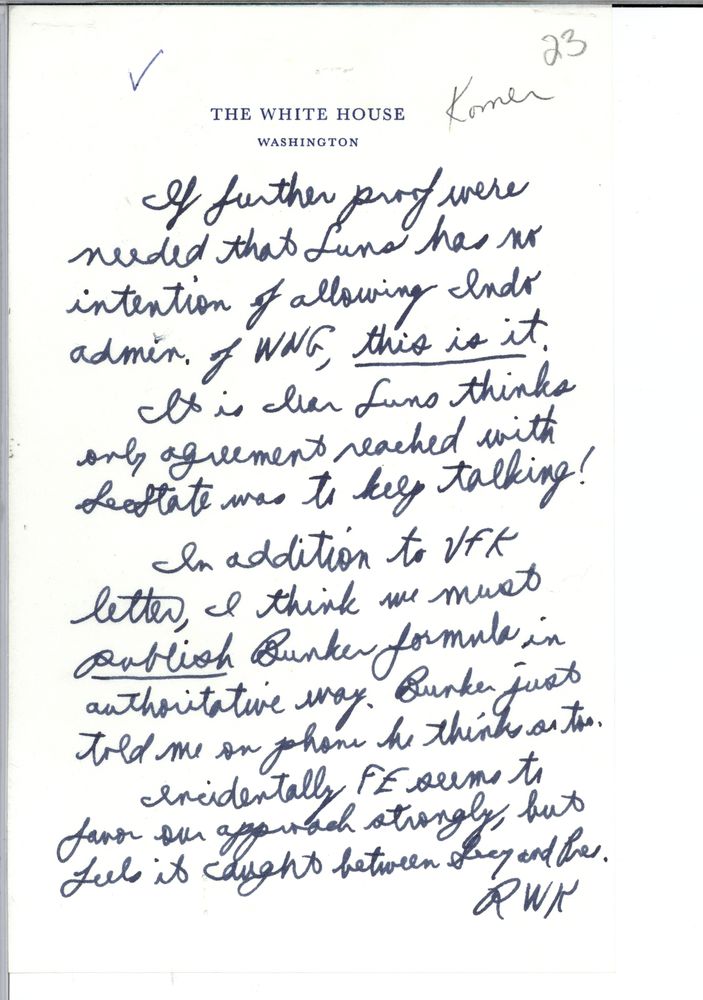 23
✓
Komer
THE WHITE HOUSE
WASHINGTON
If further proof were
needed that Luns has no
intention of allowing Indo
admin. of WNG, this is it.
It is clear Luns thinks
only agreement reached with
SecState was to keep talking!
In addition to VFK
letter, I think we must
publish Bunker formula in
authoritative way. Bunker just
told me on phone he thinks so too.
Incidentally FE seems to
favor our approach strongly, but
feels it caught between Secy and Pres.
RWK